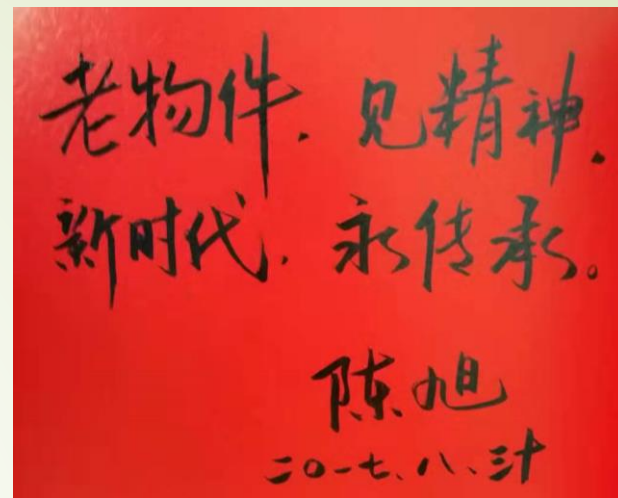 老物件，见精神，
新时代，永传承。
陈旭
二〇一七、八、三十